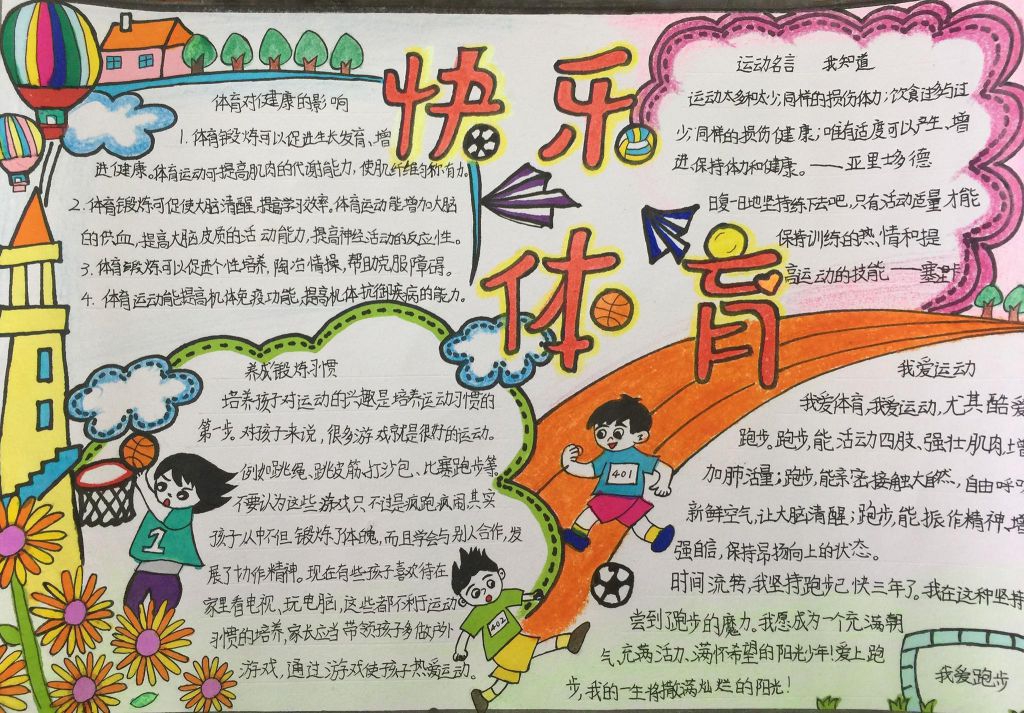 快乐
体育
体育对健康的影响
1. 体育锻炼可以促进生长发育、增
进健康。体育运动可提高肌肉的代谢能力，使肌纤维匀称有力。
2. 体育锻炼可促使大脑清醒，提高学习效率。体育运动能增加大脑
的供血，提高大脑皮质的活动能力，提高神经活动的反应性。
3. 体育锻炼可以促进个性培养，陶冶情操，帮助克服障碍。
4. 体育运动能提高机体免疫功能，提高机体抗御疾病的能力。
运动名言 我知道
运动太多和太少，同样的损伤体力；饮食过多与过
少，同样的损伤健康；唯有适度可以产生、增
进、保持体力和健康。——亚里士多德
日复一日地坚持练下去吧，只有活动适量才能
保持训练的热情和提
高运动的技能——塞
养成锻炼习惯
培养孩子对运动的兴趣是培养运动习惯的
第一步。对孩子来说，很多游戏就是很好的运动。
例如跳绳、跳皮筋、打沙包、比赛跑步等。
不要认为这些游戏只不过是疯跑疯闹，其实
孩子从中不但锻炼了体魄，而且学会与别人合作，发
展了协作精神。现在有些孩子喜欢待在
家里看电视、玩电脑，这些都不利于运动
习惯的培养，家长应当带领孩子多做户外
游戏，通过游戏使孩子热爱运动。
我爱运动
我爱体育，我爱运动，尤其酷爱
跑步。跑步，能活动四肢、强壮肌肉、增
加肺活量；跑步，能亲密接触大自然，自由呼
新鲜空气，让大脑清醒；跑步，能振作精神、增
强自信，保持昂扬向上的状态。
时间流转，我坚持跑步已快三年了。我在这种坚持
尝到了跑步的魔力。我愿成为一个充满朝
气、充满活力、满怀希望的阳光少年！爱上跑
步，我的一生将撒满灿烂的阳光！
我爱跑步
1
401
402